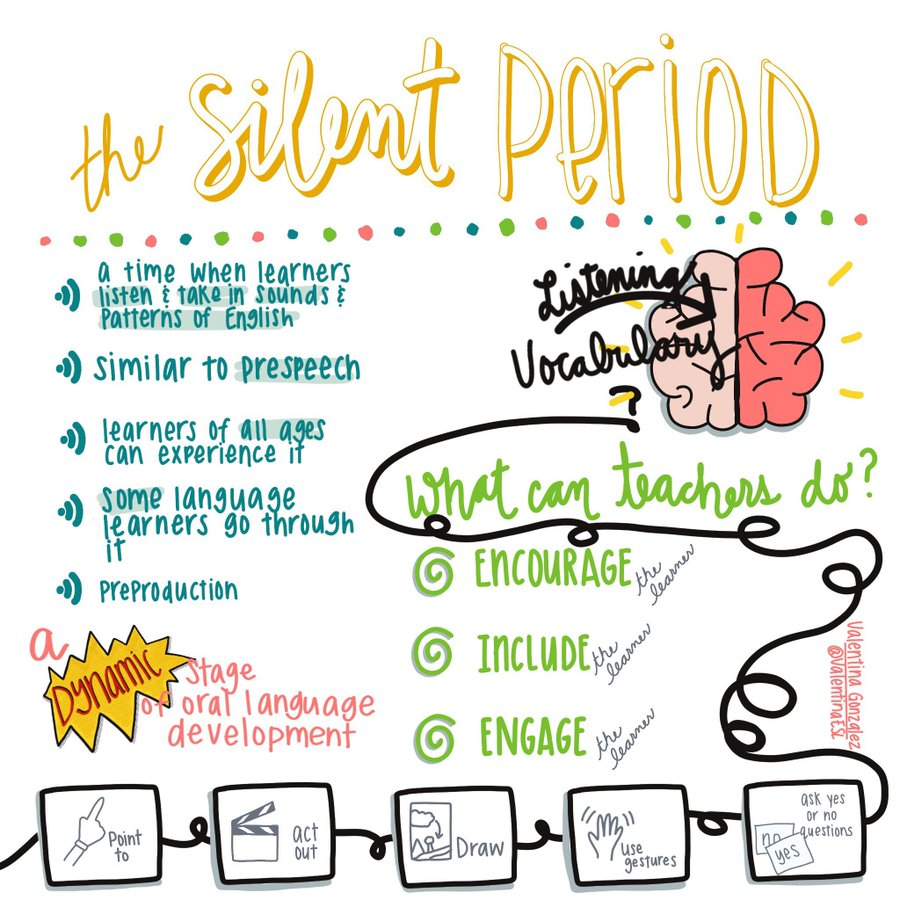 the Silent PERIOD
a time when learners
listen & take in sounds &
Patterns of English
Similar to prespeech
learners of all ages
can experience it
Some language
learners go through
it
PreProduction
a
DYNAMIC
Stage
of oral language
development
Listening
Vocabulary
?
What can teachers do?
ENCOURAGE the learner
INCLUDE the learner
ENGAGE the learner
Valentina Gonzalez
@ValentinaESL
Point
to
act
out
Draw
use
gestures
ask yes
or no
questions
no
yes